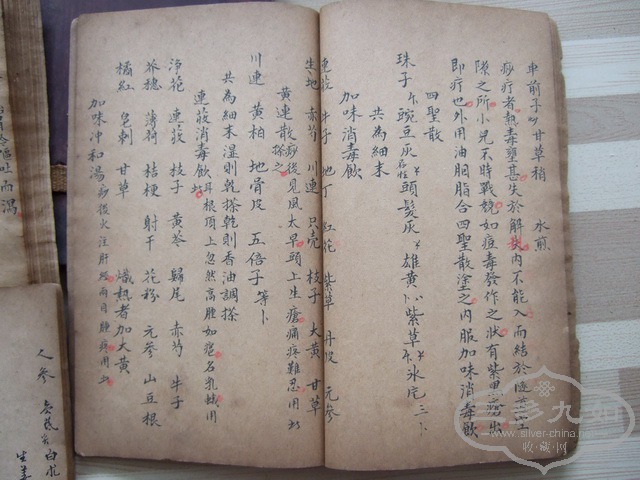 車前子 甘草梢 水煎
痧疔者熱毒壅甚失於解 內不能入而結於隨
隙之所小兒不時戰兢如痘毒發作之狀有紫黑 出
即疔也外用油胭脂合四聖散塗之內服加味消毒飲
四聖散
珠子 豌豆灰 頭髮灰 雄黃 紫草 氷片 三
共為細末
加味消毒飲
連 牛子 地丁 紅花 紫草 丹皮 元参
生地 赤芍 川連 只壳 枝子 大黃 甘草
黃連散搽之 痧後見風太早頭上生瘡痛疼難忍用
川連 黃柏 地骨皮 五倍子 等
共為細末湿則乾搽乾則香油調搽
連 消毒飲 耳根頂上忽然高腫如 名乳 用
淨花 連 枝子 黃芩 歸尾 赤芍 牛子
芥穗 薄荷 桔梗 射干 花粉 元参 山豆根
橘紅 皂刺 甘草 熾熱者加大黃
加味沖和湯 痧後火注肝經兩目腫疼用
嘔吐而瀉
人參
白朮
生姜
多多九如
www.silver-china.net
收·藏·网